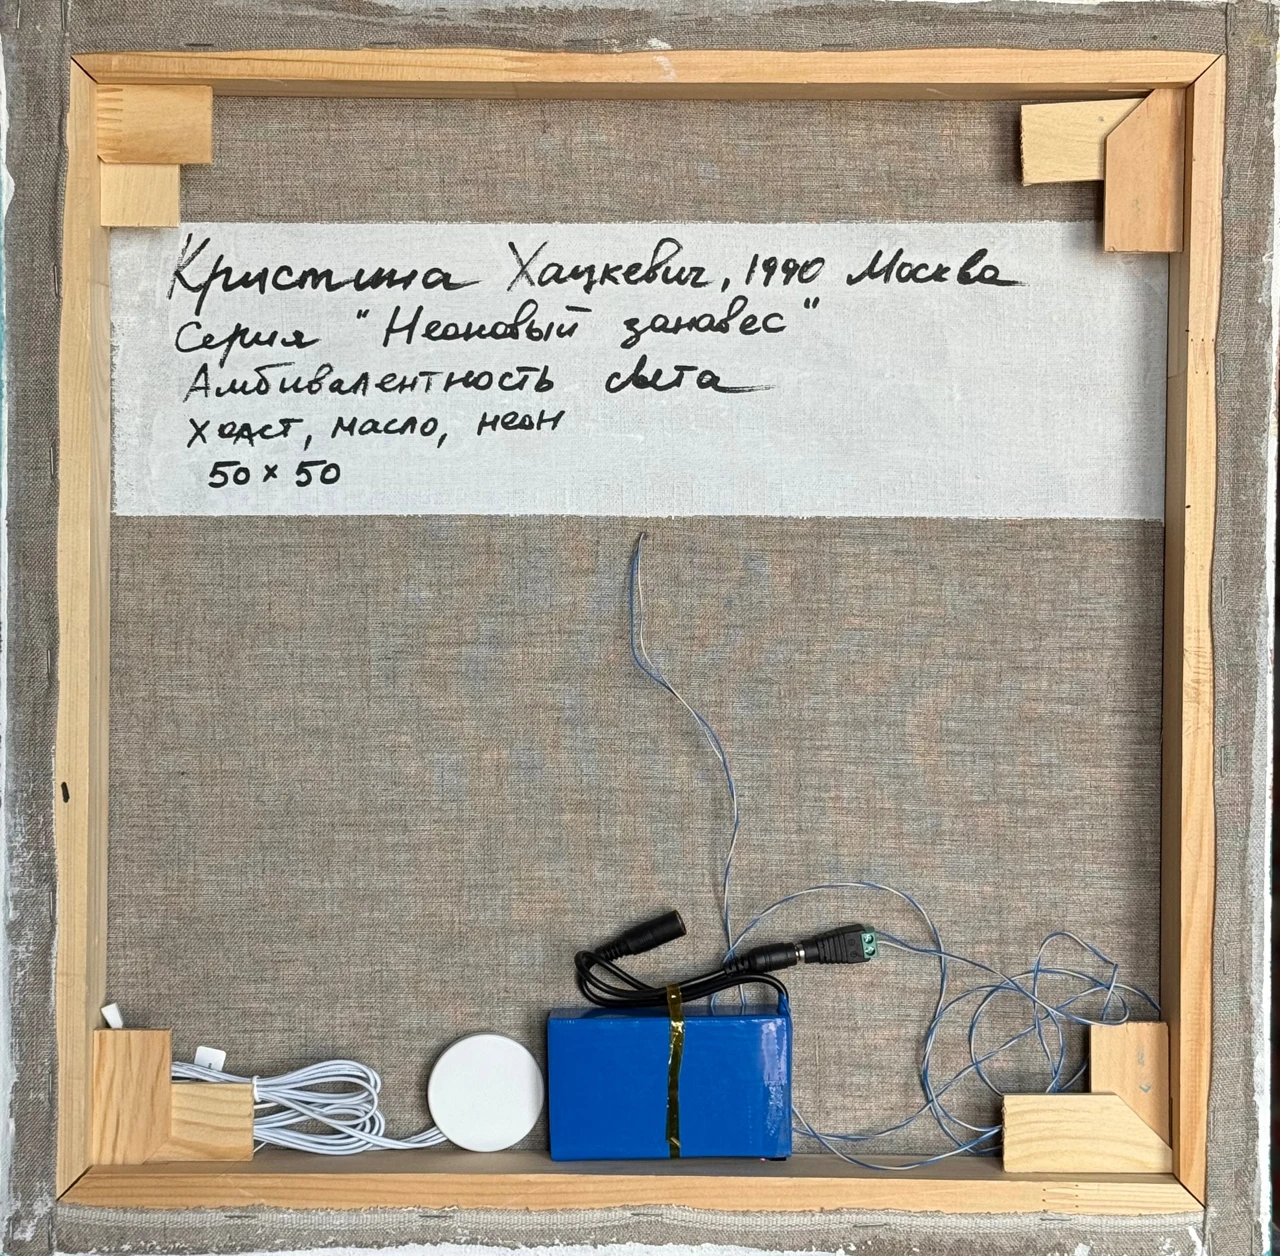 Кристина Хацкевич, 1990 Москва
Серия "Неоновый занавес"
Амбивалентность света
Холст, масло, неон
50 x 50